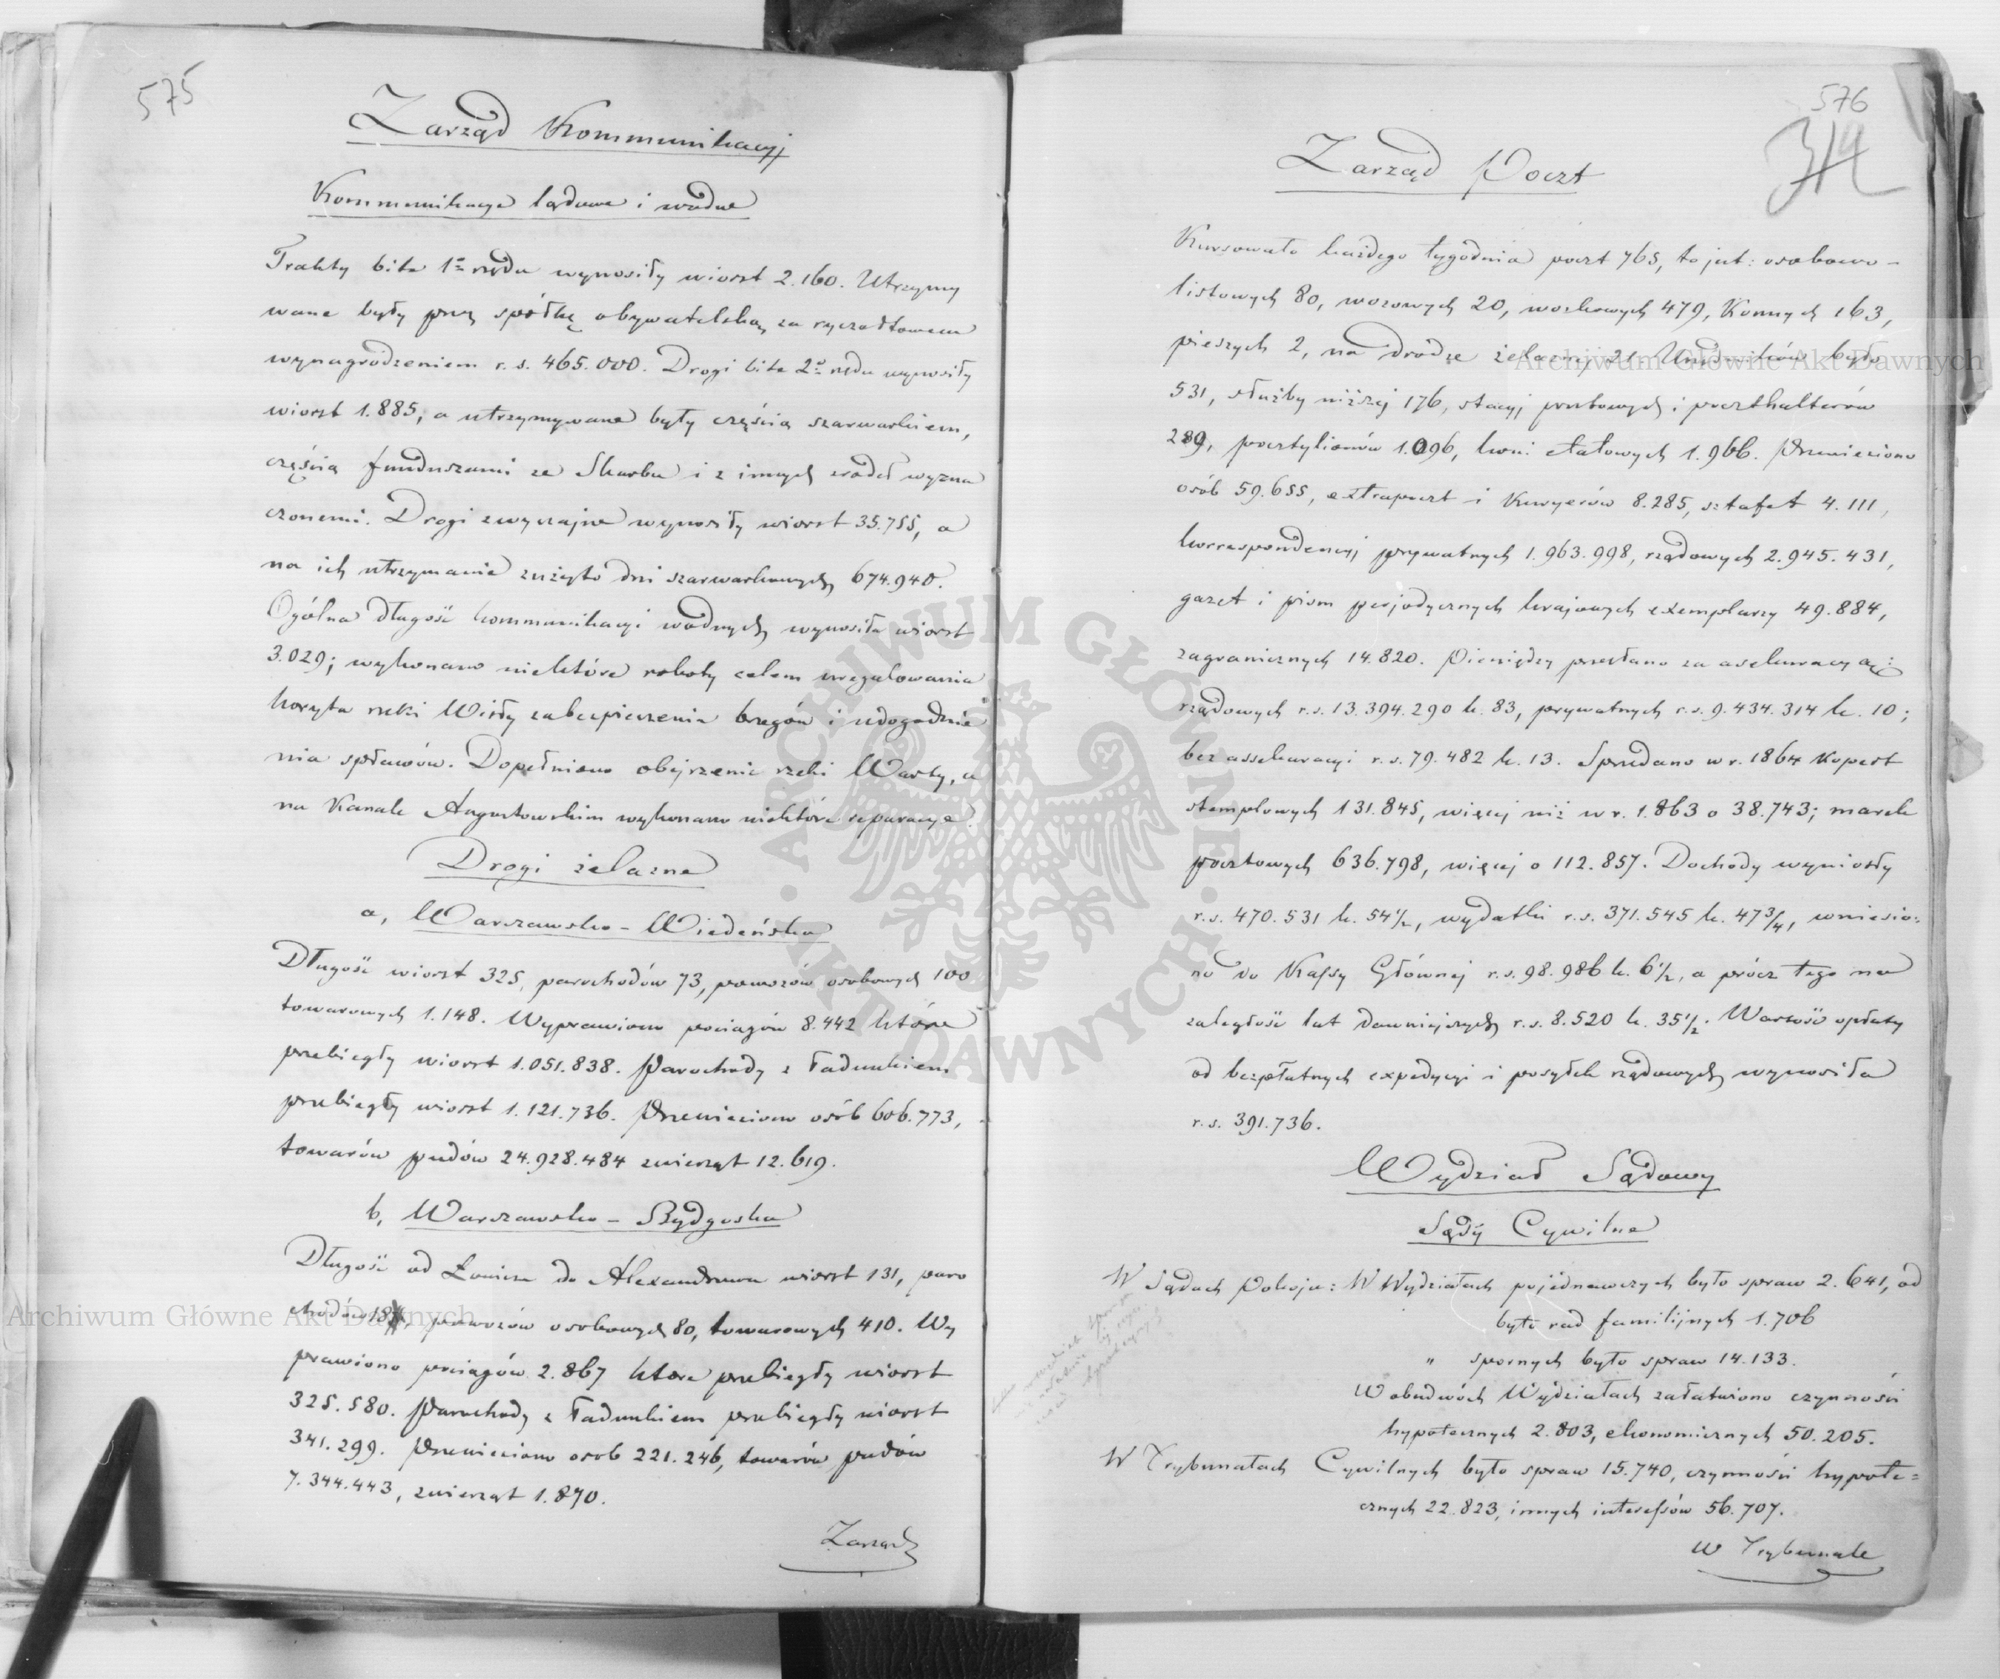 575
Zarząd Kommunikacyj
Kommunikacye lądowe i wodne
Trakty bite 1go rzędu wynosiły wiorst 2.160. Utrzymy
wane były przez spółkę obywatelską za ryczałtowem
wynagrodzeniem r.s. 465.000. Drogi bite 2go rzędu wynosiły
wiorst 1.885, a utrzymywane były częścią szarwarkiem,
częścią funduszami ze Skarbu i z innych zródeł wyzna
czonemi. Drogi zwyczajne wynosiły wiorst 35.755, a
na ich utrzymanie zużyto dni szarwarkowych 674.940.
Ogólna długość kommunikacyi wodnych wynosiła wiorst
3.029; wykonano niektóre roboty celem uregulowania
koryta rzeki Wisły zabezpieczenia brzegów i udogodnie
nia spławów. Dopełniono obejrzenie rzeki Warty, a
na Kanale Augustowskim wykonano niektóre reparacye.
Drogi żelazne
a, Warszawsko-Wiedeńska
Długość wiorst 325, parochodów 73, powozów osobowych 100
towarowych 1.148. Wyprawiono pociągów 8.442 które
przebiegły wiorst 1.051.838. Parochody z ładunkiem
przebiegły wiorst 1.121.736. Przewieziono osób 606.773,
towarów pudów 24.928.484 zwierząt 12.619.
b, Warszawsko-Bydgoska
Długość od Łowicza do Alexandrowa wiorst 131, paro
chodów 18, powozów osobowych 80, towarowych 410. Wy
prawiono pociągów 2.867 które przebiegły wiorst
325.580. Parochody z ładunkiem przebiegły wiorst
341.299. Przewieziono osob 221.246, towarów pudów
7.344.443, zwierząt 1.870.
Zarząd
576
314
Zarząd Poczt
Kursowało każdego tygodnia poczt 765, to jest: osobowo-
listowych 80, wozowych 20, workowych 479, Konnych 163,
pieszych 2, na drodze żelaznej 21. Urzędników było
531, służby niższej 176, stacyj pocztowych i poczthalterów
289, pocztylionów 1.096, koni etatowych 1.966. Przewieziono
osób 59.655, extrapoczt i Kuryerów 8.285, sztafet 4.111,
korrespondencyj prywatnych 1.963.998, rządowych 2.945.431,
gazet i pism peryodycznych krajowych exemplarzy 49.884,
zagranicznych 14.820. Pieniędzy przesłano za assekuracyą:
rządowych r.s. 13.394.290 k. 83, prywatnych r.s. 9.434.314 k. 10;
bez assekuracyi r.s. 79.482 k. 13. Sprzedano w r. 1864 Kopert
stemplowych 131.845, więcej niż w r. 1.863 o 38.743; marek
pocztowych 636.798, więcej o 112.857. Dochody wyniosły
r.s. 470.531 k. 54½, wydatki r.s. 371.545 k. 47¾, wniesio:
no do Kassy Głównej r.s. 98.986 k. 6½, a prócz tego na
zaległość lat dawniejszych r.s. 8.520 k. 35½. Wartość opłaty
od bezpłatnych expedycyi i posyłek rządowych wynosiła
r.s. 391.736.
Wydział Sądowy
Sądy Cywilne
W Sądach Pokoju: W Wydziałach pojednawczych było spraw 2.641, od
było rad familijnych 1.706
" spornych było spraw 14.133.
W obudwóch Wydziałach załatwiono czynności
hypotecznych 2.803, ekonomicznych 50.205.
W Trybunałach Cywilnych było spraw 15.740, czynności hypote=
cznych 22.823, innych interessów 56.707.
W Trybunale
Archiwum Główne Akt Dawnych
Archiwum Główne Akt Dawnych
ARCHIWUM GŁÓWNE · AKT DAWNYCH ·